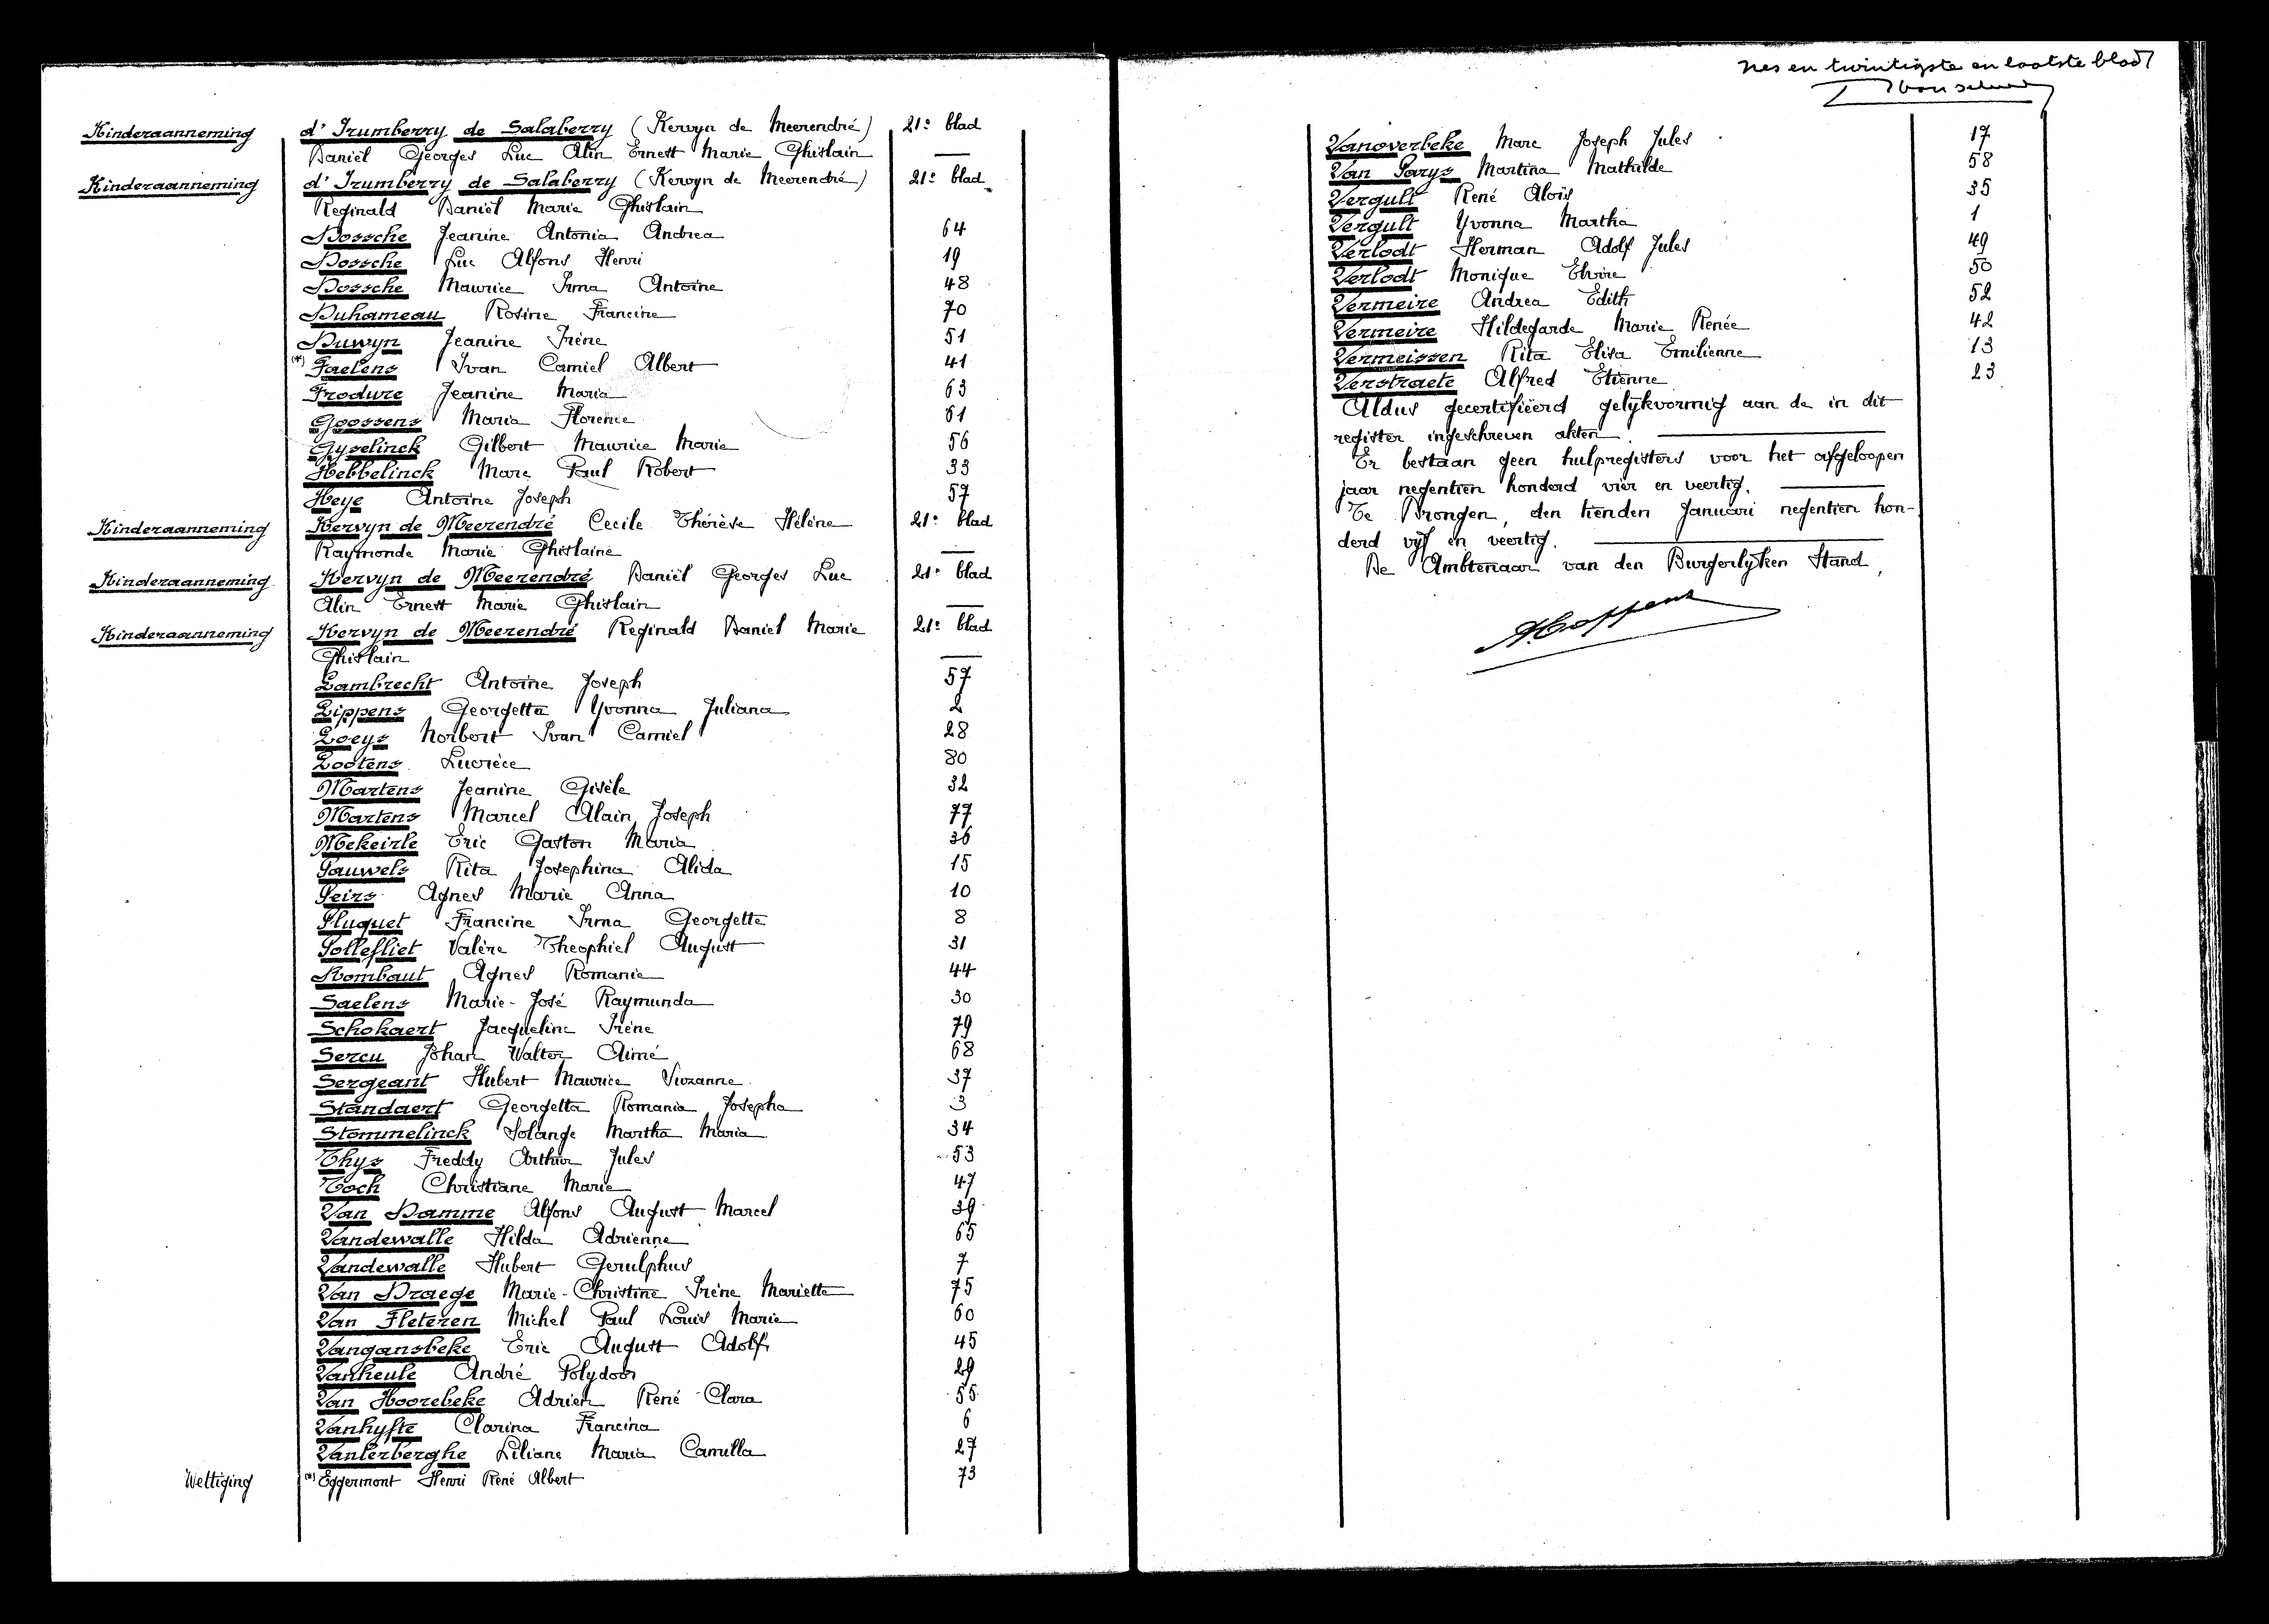 Kinderaanneming d'Irumberry de Salaberry (Kervyn de Meerendré) 21e blad
Daniël Georges Luc Alin Ernest Marie Ghislain —
Kinderaanneming d'Irumberry de Salaberry (Kervyn de Meerendré) 21e blad
Reginald Daniël Marie Ghislain
Dossche Jeanine Antonia Andrea 64
Dossche Luc Alfons Henri 19
Dossche Maurice Irma Antoine 48
Duhameau Rosine Francine 70
Duwyn Jeanine Irène 51
(*) Faelens Ivan Camiel Albert 41
Frodure Jeanine Maria 63
Goossens Maria Florence 61
Gyselinck Gilbert Maurice Marie 56
Hebbelinck Marc Paul Robert 33
Heye Antoine Joseph 57
Kinderaanneming Kervyn de Meerendré Cecile Thérèse Hélène 21e blad
Raymonde Marie Ghislaine —
Kinderaanneming Kervyn de Meerendré Daniël Georges Luc 21e blad
Alin Ernest Marie Ghislain —
Kinderaanneming Kervyn de Meerendré Reginald Daniel Marie 21e blad
Ghislain —
Lambrecht Antoine Joseph 57
Lippens Georgetta Yvonna Juliana 2
Loeys Norbert Ivan Camiel 28
Lootens Lucrèce 80
Martens Jeanine Gisèle 32
Martens Marcel Alain Joseph 77
Mekeirle Eric Gaston Maria 36
Pauwels Rita Josephina Alida 15
Peirs Agnes Marie Anna 10
Pluquet Francine Irma Georgette 8
Pollefliet Valère Theophiel August 31
Rombaut Agnes Romanie 44
Saelens Marie-José Raymunda 30
Schokaert Jacqueline Irène 79
Sercu Johan Walter Aimé 68
Sergeant Hubert Maurice Suzanne 37
Standaert Georgetta Romania Josepha 3
Stommelinck Solange Martha Maria 34
Thys Freddy Arthur Jules 53
Toch Christiane Marie 47
Van Damme Alfons August Marcel 39
Vandewalle Hilda Adrienne 65
Vandewalle Hubert Gerulphus 7
Van Draege Marie-Christine Irène Mariette 75
Van Fleteren Michel Paul Louis Marie 60
Vangansbeke Eric August Adolf 45
Vanheule André Polydoor 29
Van Hoorebeke Adrien René Clara 55
Vanhyfte Clarina Francina 6
Vanlerberghe Liliane Maria Camilla 27
Wettiging (*) Eggermont Henri René Albert 73
en twintigste en laatste blad
Vanoverbeke Marc Joseph Jules 17
Van Parys Martina Mathilde 58
Vergult René Aloïs 35
Vergult Yvonna Martha 1
Verlodt Herman Adolf Jules 49
Verlodt Monique Elvire 50
Vermeire Andrea Edith 52
Vermeire Hildegarde Marie Renée 42
Vermeissen Rita Elisa Emilienne 13
Verstraete Alfred Etienne 23
Aldus gecertifiëerd gelijkvormig aan de in dit
register ingeschreven akten. —
Er bestaan geen hulpregisters voor het afgeloopen
jaar negentien honderd vier en veertig. —
Te Drongen, den tienden Januari negentien hon-
derd vijf en veertig. —
De Ambtenaar van den Burgerlijken Stand,
A. Coppens